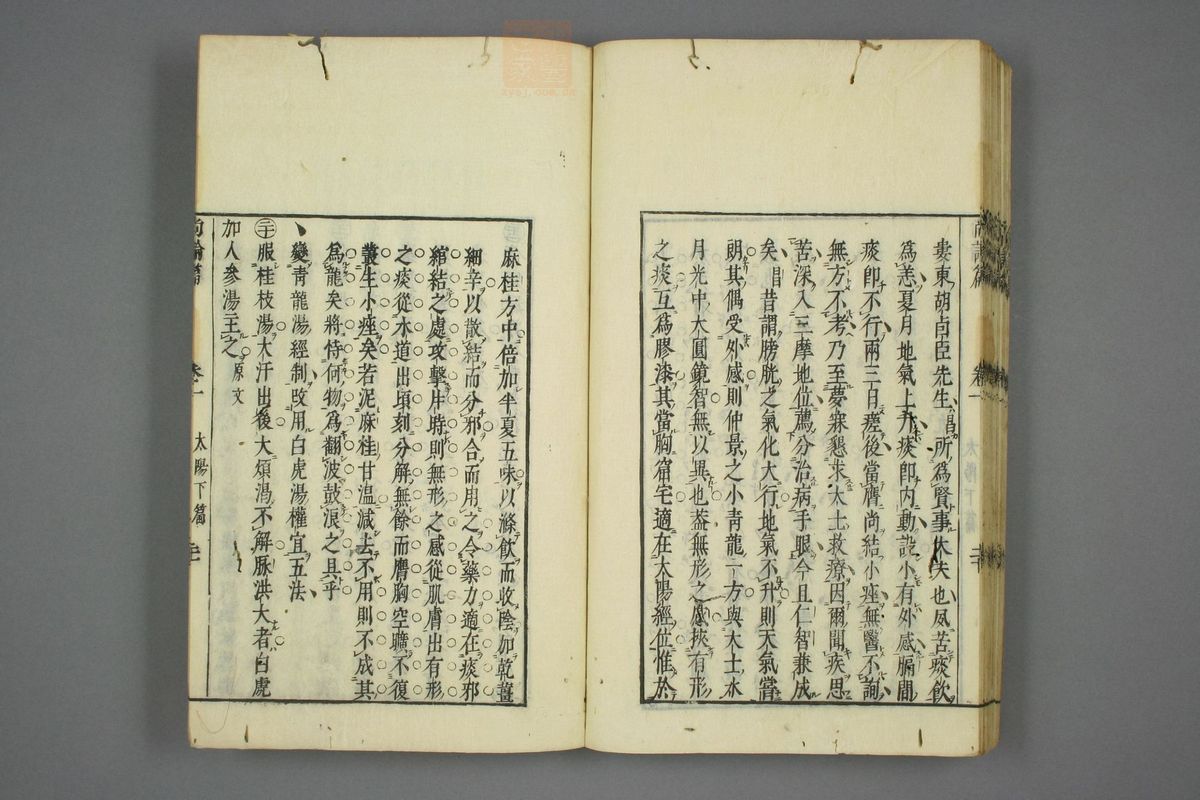 婁東胡卣臣先生昌所為賢事大夫也夙苦痰飲
為恙夏月地氣上升痰即內動設小有外感膈間
痰即不行兩三日瘥後當膺尚結小痤無醫不詢
無方不考乃至夢寐懇求大士救療因爾聞疾思
苦深入三摩地位薦分治病手眼今且仁智兼成
矣昌昔謂膀胱之氣化大行地氣不升則天氣嘗
朗其偶受外感則仲景之小青龍一方與大士水
月光中大圓鏡智無以異也葢無形之感挾有形
之痰互為膠漆其當胸窟宅適在太陽經位惟於
麻桂方中倍加半夏五味以滌飲而收陰加乾薑
細辛以散結而分邪合而用之令藥力適在痰邪
綰結之處攻擊片時則無形之感從肌膚出有形
之痰從水道出頃刻分解無餘而膺胸空曠不復
叢生小痤矣若泥麻桂甘温減去不用則不成其
為龍矣將恃何物為翻波鼓浪之具乎
變青龍湯經制改用白虎湯權宜五法
服桂枝湯大汗出後大煩渴不解脉洪大者白虎
加人參湯主之原文
尚論篇 卷一 太陽下篇